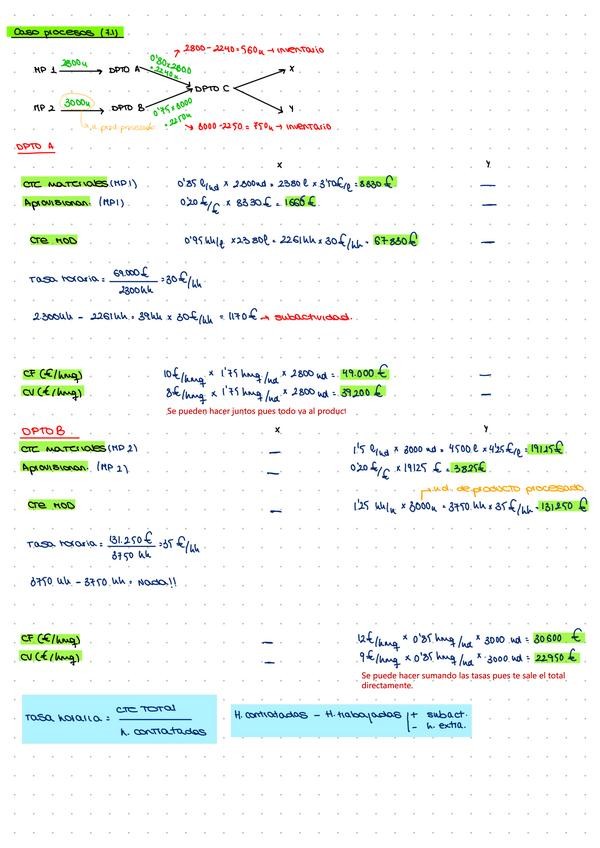 Caso procesos (7.1)
2800 - 2240 = 560u → inventario
MP 1 2800u DPTO A 0'80 x 2800 = 2240u. X
DPTO C
MP 2 3000u DPTO B 0'75 x 3000 = 2250u Y
u. prod procesado
3000 - 2250 = 750u → inventario
DPTO A
X Y
CTE MATERIALES (MP1) 0'85 l/ud x 2800ud = 2380l x 3'50€/l = 8330€ —
Aprovisionam. (MP1) 0'20 €/€ x 8330€ = 1666€ —
CTE MOD 0'95 hh/l x 2380l = 2261hh x 30€/hh = 67830€ —
Tasa horaria = 69.000€ / 2300hh = 30€/hh
2300hh - 2261hh = 39hh x 30€/hh = 1170€ → subactividad.
CF (€/hmq) 10€/hmq x 1'75 hmq/ud x 2800 ud = 49.000€ —
CV (€/hmq) 8€/hmq x 1'75 hmq/ud x 2800 ud = 39200€ —
Se pueden hacer juntos pues todo va al product
DPTO B X Y
CTE MATERIALES (MP 2) — 1'5 l/ud x 3000ud = 4500l x 4'25€/l = 19125€
Aprovisionam. (MP 2) — 0'20 €/€ x 19125€ = 3825€
u.d. de producto procesado
CTE MOD — 1'25 hh/u x 3000u = 3750 hh x 35€/hh = 131250€
Tasa horaria = 131.250€ / 3750 hh = 35€/hh
3750 hh - 3750 hh = Nada!!
CF (€/hmq) — 12€/hmq x 0'85 hmq/ud x 3000 ud = 30600 €
CV (€/hmq) — 9€/hmq x 0'85 hmq/ud x 3000 ud = 22950 €
Se puede hacer sumando las tasas pues te sale el total
directamente.
Tasa horaria = CTE TOTAL / h. contratadas
H. contratadas - H. trabajadas + subact.
- h. extra.